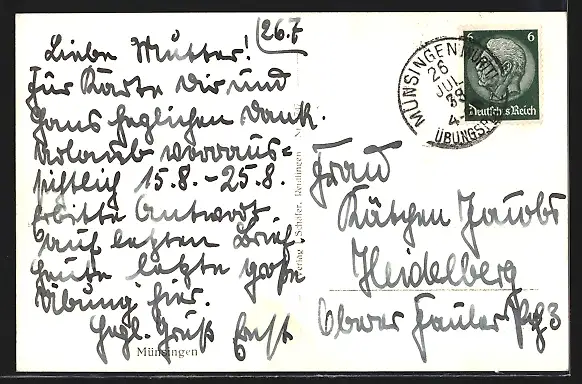 26.7
Liebe Mutter!
Für Karte Dir und
Hans herzlichen Dank.
Urlaub voraus-
sichtlich 15.8.-25.8.
Erbitte Antwort
auf letzten Brief.
Heute letzte große
Übung hier.
Herzl. Gruß Ernst
Münsingen
Verlag Schäfer, Reutlingen
MÜNSINGEN (WÜRTT)
26
JUL
39
ÜBUNGSPL
6 6
Deutsches Reich
Frau
Kätchen Jacobs
Heidelberg
Obere Fauler Pelz 3